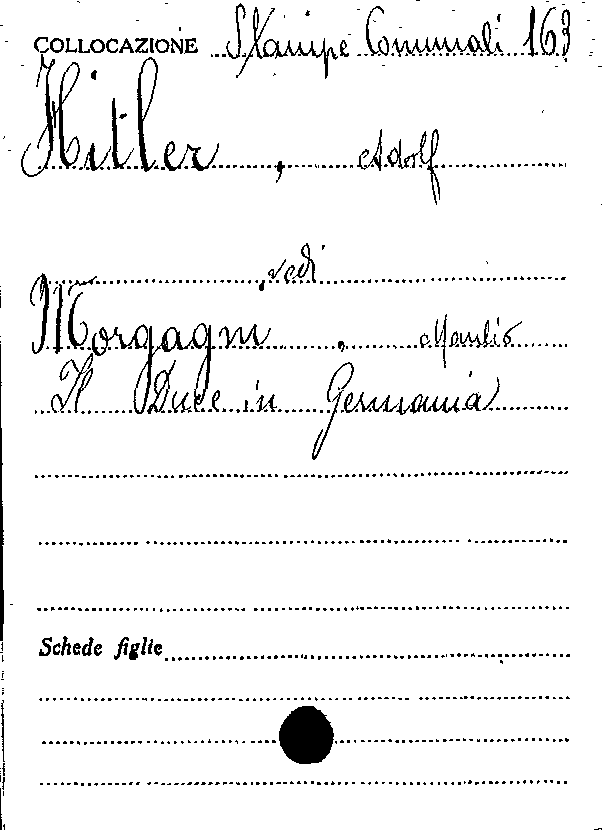 COLLOCAZIONE Stampe Comunali 163
Hitler, Adolf
vedi
Morgagni, Manlio
Il Duce in Germania
Schede figlie